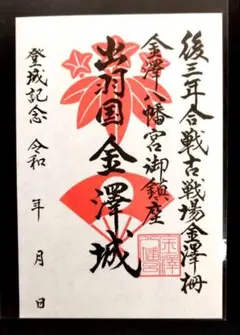 後三年合戦古戦場金澤柵
金澤八幡宮御鎮座
出羽国金澤城
登城記念 令和 年 月 日